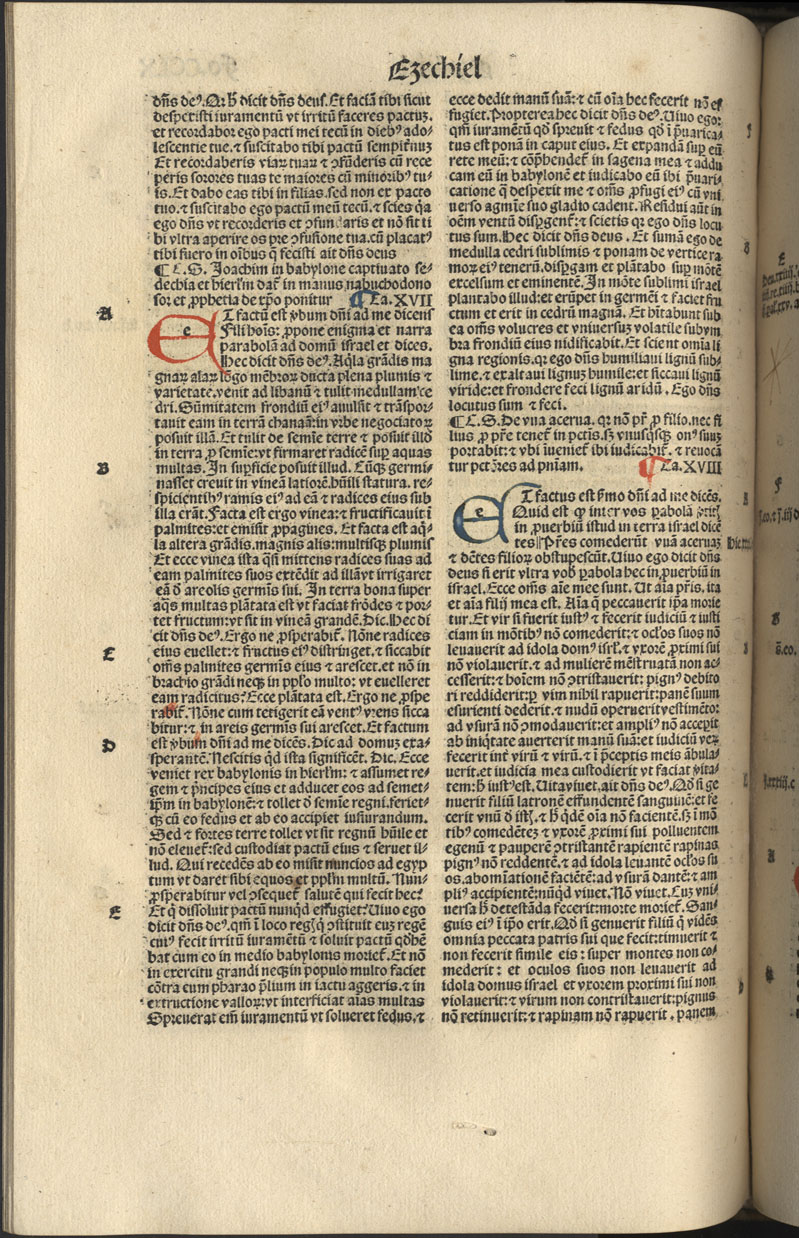 Ezechiel
dñs deꝰ. Q: h̄ dicit dñs deus. Et faciā tibi sicut
despexisti iuramentū vt irritū faceres pactuꝫ.
et recordabor ego pacti mei tecū in diebꝰ ado-
lescentie tue. ⁊ suscitabo tibi pactū sempitnuꝫ
Et recordaberis viaꝝ tuaꝝ ⁊ ꝯfūderis cū rece
peris sorores tuas te maiores cū minoribꝰ tu-
is. Et dabo eas tibi in filias. sed non ex pacto
tuo. ⁊ suscitabo ego pactū meū tecū. ⁊ scies q̄a
ego dñs vt recorderis et ꝯfundaris et nō sit ti
bi vltra aperire os pre ꝯfusione tua. cū placatꝰ
tibi fuero in oībus q̄ fecisti ait dñs deus
¶ C. S. Joachim in babylone captiuato se-
dechia et hierlm dat̄ in manus nabuchodono
sor: et ꝓphetia de xp̄o ponitur ¶ Ca. XVII
A
ET factū est ꝟbum dñi ad me dicens
e
Fili hoīs: ꝓpone enigma et narra
parabolā ad domū israel et dices.
Hec dicit dñs deꝰ. Aq̄la grādis ma
gnaꝝ alaꝝ lōgo mēbroꝝ ductu plena plumis ⁊
varietate. venit ad libanū ⁊ tulit medullam ce
dri. Sūmitatem frondiū eiꝰ auulsit ⁊ trāspor-
tauit eam in terrā chanaan: in vrbe negociatoꝝ
posuit illā. Et tulit de semīe terre ⁊ posuit illd̄
in terra ꝓ semīe: vt firmaret radicē sup aquas
B
multas. In supficie posuit illud. Cūqꝫ germi-
nasset creuit in vineā latiorē. hūili statura. re-
spicientibꝰ ramis eiꝰ ad eā ⁊ radices eius sub
illa erāt. Facta est ergo vinea: ⁊ fructificauit ī
palmites: et emisit ꝓpagines. Et facta est aq̄-
la altera grādis. magnis alis: multisqꝫ plumis
Et ecce vinea ista q̄si mittens radices suas ad
eam palmites suos extēdit ad illā vt irrigaret
eā ō areolis germīs sui. In terra bona super
aq̄s multas plātata est vt faciat frōdes ⁊ por-
tet fructum: vt sit in vineā grandē. Dic. Hec di
cit dñs deꝰ. Ergo ne ꝓsperabit̄. Nōne radices
C
eius euellet: ⁊ fructus eiꝰ distringet. ⁊ siccabit
oēs palmites germīs eius ⁊ arescet. et nō in
brachio grādi neqꝫ in pplo multo: vt euelleret
eam radicitus? Ecce plātata est. Ergo ne ꝓspe
rabit̄. Nōne cum tetigerit eā ventꝰ vrens sicca
bitur: ⁊ in areis germīs sui arescet. Et factum
D
est ꝟbum dñi ad me dicēs. Dic ad domuꝫ exa-
sperantē. Nescitis qd̄ ista significēt. Dic. Ecce
veniet rex babylonis in hierlm: ⁊ assumet re-
gem ⁊ pncipes eius et adducet eos ad semet-
ipm in babylonē: ⁊ tollet ō semīe regni. feriet-
qꝫ cū eo fedus et ab eo accipiet iusiurandum.
Sed ⁊ fortes terre tollet vt sit regnū hūile et
nō eleuet̄: sed custodiat pactū eius ⁊ seruet il-
lud. Qui recedēs ab eo misit nuncios ad egyp
tum vt daret sibi equos et pplm multū. Nun-
ꝓsperabitur vel ꝯsequet̄ salutē qui fecit hec?
E
Et q̄ dissoluit pactū nunqd̄ effugiet? Uiuo ego
dicit dñs deꝰ. qm̄ ī loco regꝭ q̄ ꝯstituit euꝫ regē
cuiꝰ fecit irritū iuramētū ⁊ soluit pactū qd̄ hē-
bat cum eo in medio babylonis moriet̄. Et nō
in exercitu grandi neqꝫ in populo multo faciet
cōtra eum pharao plium in iactu aggeris. ⁊ in
extructione valloꝝ: vt interficiat aīas multas
Spreuerat em̄ iuramentū vt solueret fedus. ⁊
ecce dedit manū suā: ⁊ cū oīa hec fecerit nō ef
fugiet. Propterea hec dicit dñs deꝰ. Uiuo ego:
qm̄ iuramētū qd̄ spreuit ⁊ fedus qd̄ ī p̄uarica-
tus est ponā in caput eius. Et expandā sup eū
rete meū: ⁊ cōp̄hendet̄ in sagena mea ⁊ addu
cam eū in babylonē et iudicabo eū ibi p̄uari-
catione q̄ despexit me ⁊ oēs ꝓfugi eiꝰ cū vni
uerso agmīe suo gladio cadent. Residui aūt in
oēm ventū disꝑgent̄: ⁊ scietis qꝛ ego dñs locu
tus sum. Hec dicit dñs deus. Et sumā ego de
medulla cedri sublimis ⁊ ponam de vertice ra
moꝝ eiꝰ tenerū. disꝑgam et plātabo sup mōtē
excelsum et eminentē. In mōte sublimi israel
plantabo illud: et erūpet in germē ⁊ faciet fru
ctum et erit in cedrū magnā. Et hītabunt sub
ea oēs volucres et vniuersuꝫ volatile sub vm
bra frondiū eius nidificabit. Et scient omīa li
gna regionis. qꝛ ego dñs humiliaui lignū sub-
lime. ⁊ exaltaui lignuꝫ humile: et siccaui lignū
viride: et frondere feci lignū aridū. Ego dñs
locutus sum ⁊ feci.
¶ C. S. De vua acerua. qꝛ nō pr̄ ꝓ filio. nec fi
lius ꝓ pr̄e tenet̄ in pctīs. sꝫ vnusqsqꝫ onꝰ suuꝫ
portabit: ⁊ vbi iueniet̄ ibi iudicabit̄. ⁊ reuocā
tur pctōres ad pniam. ¶ Ca. XVIII
ET factus est ꝟmo dñi ad me dicēs.
e
Quid est ꝙ inter vos ꝑabolā
in ꝓuerbiū istud in terra israel dicē
tes Pr̄es comederūt vuā aceruaꝫ
⁊ dētes filioꝝ obstupescūt. Uiuo ego dicit dñs
deus si erit vltra vob ꝑabola hec in ꝓuerbiū in
israel. Ecce oēs aīe mee sunt. Ut aīa pr̄is. ita
et aīa filij mea est. Aīa q̄ peccauerit ipa morie
tur. Et vir si fuerit iustꝰ ⁊ fecerit iudiciū ⁊ iusti
ciam in mōtibꝰ nō comederit: ⁊ oclos suos nō
leuauerit ad idola domꝰ isrl. ⁊ vxorē ꝓximi sui
nō violauerit. ⁊ ad mulierē mēstruatā non ac-
cesserit: ⁊ hoīem nō ꝯtristauerit: pignꝰ debito
ri reddiderit: ꝑ vim nihil rapuerit: panē suum
esurienti dederit. ⁊ nudū operuerit vestimēto:
ad vsurā nō ꝯmodauerit: et ampliꝰ nō acceperit
ab iniq̄tate auerterit manū suā: et iudiciū veꝝ
fecerit int̄ virū ⁊ virū. ⁊ ī p̄ceptis meis ābula-
uerit. et iudicia mea custodierit vt faciat v̄ita-
tem: h̄ iustꝰ est. Uita viuet. ait dñs deꝰ. Qd̄ si ge
nuerit filiū latronē effundentē sanguinē: et fe
cerit vnū ō istꝭ. ⁊ h̄ qdē oīa nō facientē. sꝫ ī mō
tibꝰ comedētez ⁊ vxorē ꝓximi sui polluentem
egenū ⁊ pauperē ꝯtristantē rapientē rapinas
pignꝰ nō reddentē. ⁊ ad idola leuantē oclos su
os. abomīationē faciētē: ad vsurā dantē: ⁊ am
pliꝰ accipientē: nūqd viuet. Nō viuet. Cuꝫ vni-
uersa h̄ detestāda fecerit: morte moriet̄. San-
guis eiꝰ ī ipo erit. Qd̄ si genuerit filiū q̄ vidēs
omnia peccata patris sui que fecit: timuerit ⁊
non fecerit simile eis: super montes non co-
mederit: et oculos suos non leuauerit ad
idola domus israel et vxorem proximi sui non
violauerit: ⁊ virum non contristauerit: pignus
nō retinuerit: ⁊ rapinam nō rapuerit. panem